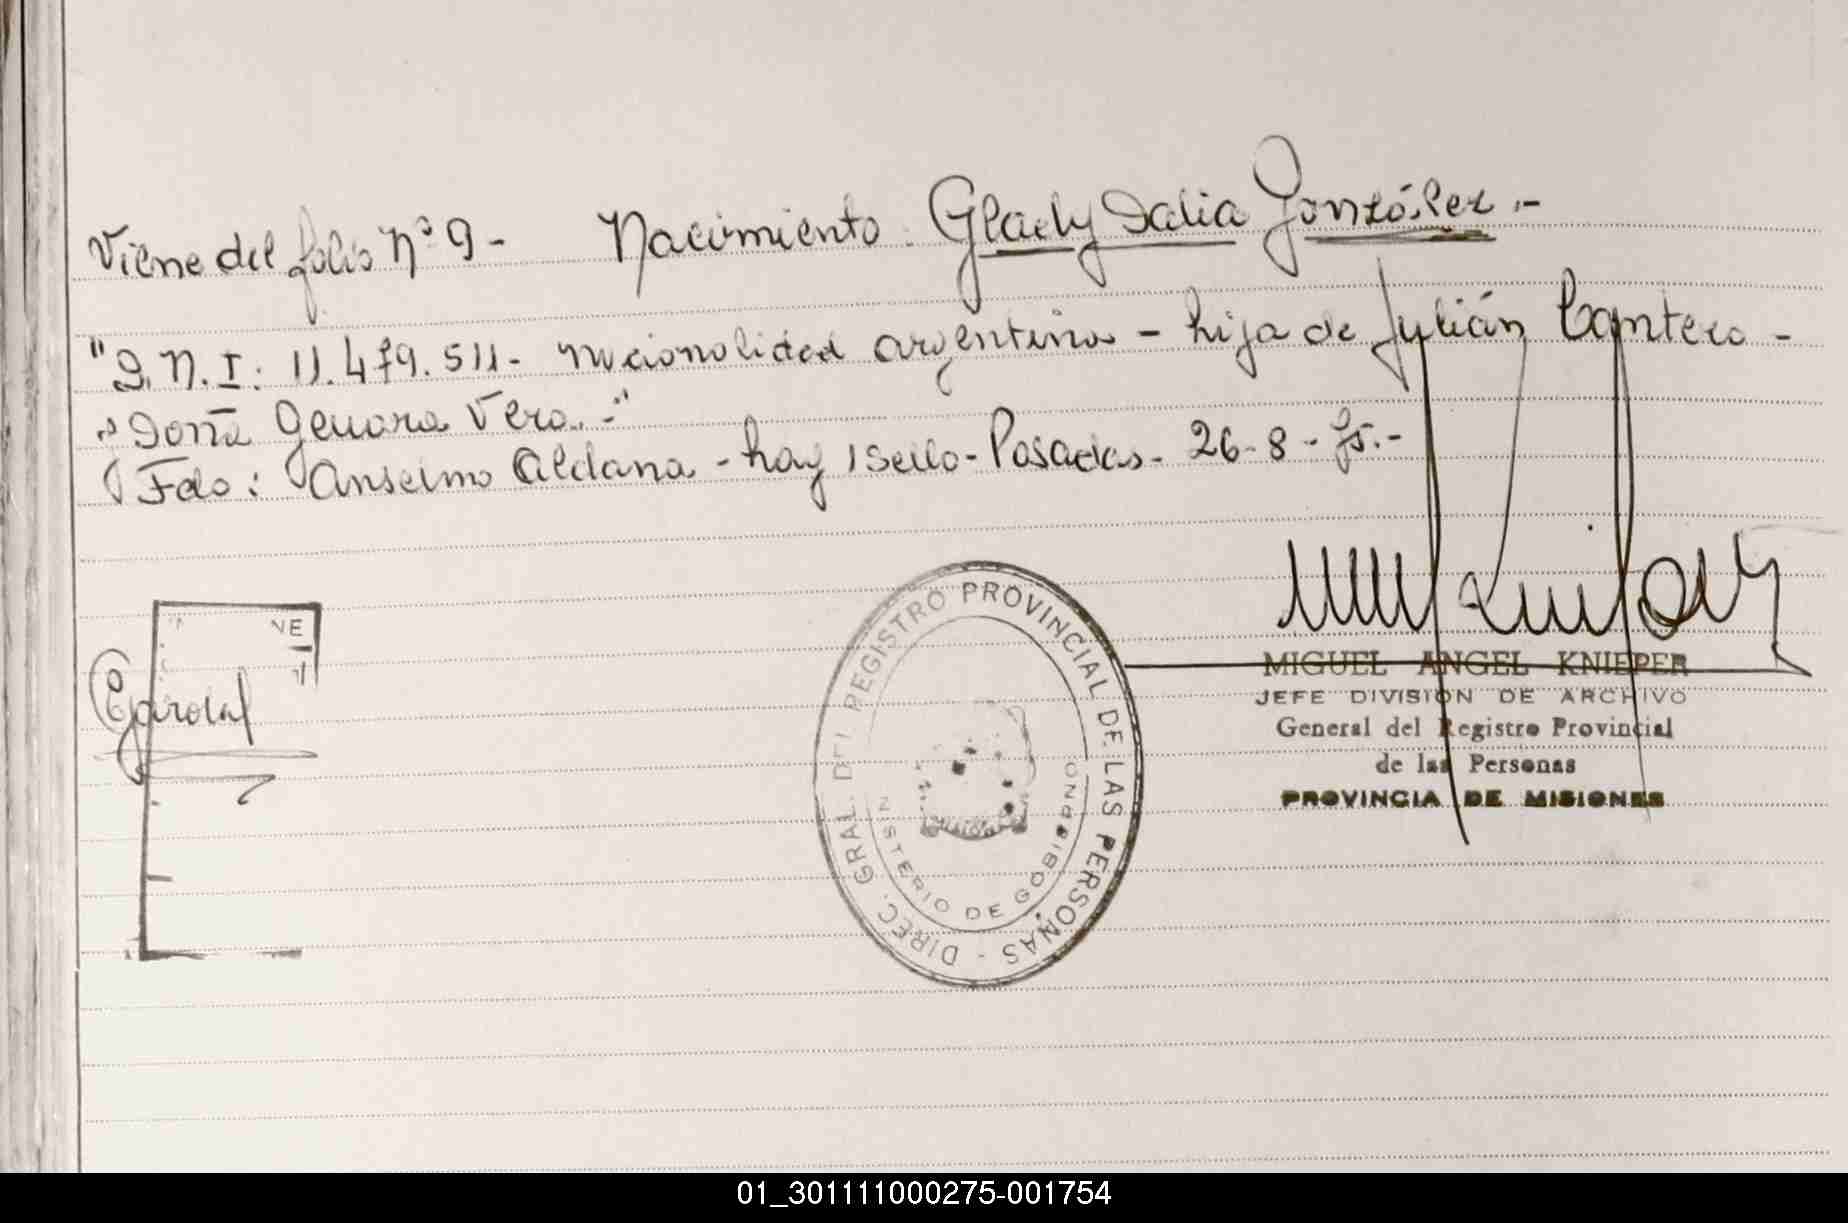 Viene del folio Nº 9 - Nacimiento. Glady Dalia González.-
"D.N.I: 11.479.511- nacionalidad argentina - hija de Julián Cantero -
"Doña Genara Vera.-"
Fdo: Anselmo Aldana - hay 1 sello - Posadas - 26-8-85.-
NE
DIREC. GRAL. DEL REGISTRO PROVINCIAL DE LAS PERSONAS -
NISTERIO DE GOBIERNO
MIGUEL ANGEL KNIEPER
JEFE DIVISION DE ARCHIVO
General del Registro Provincial
de las Personas
PROVINCIA DE MISIONES
01_301111000275-001754